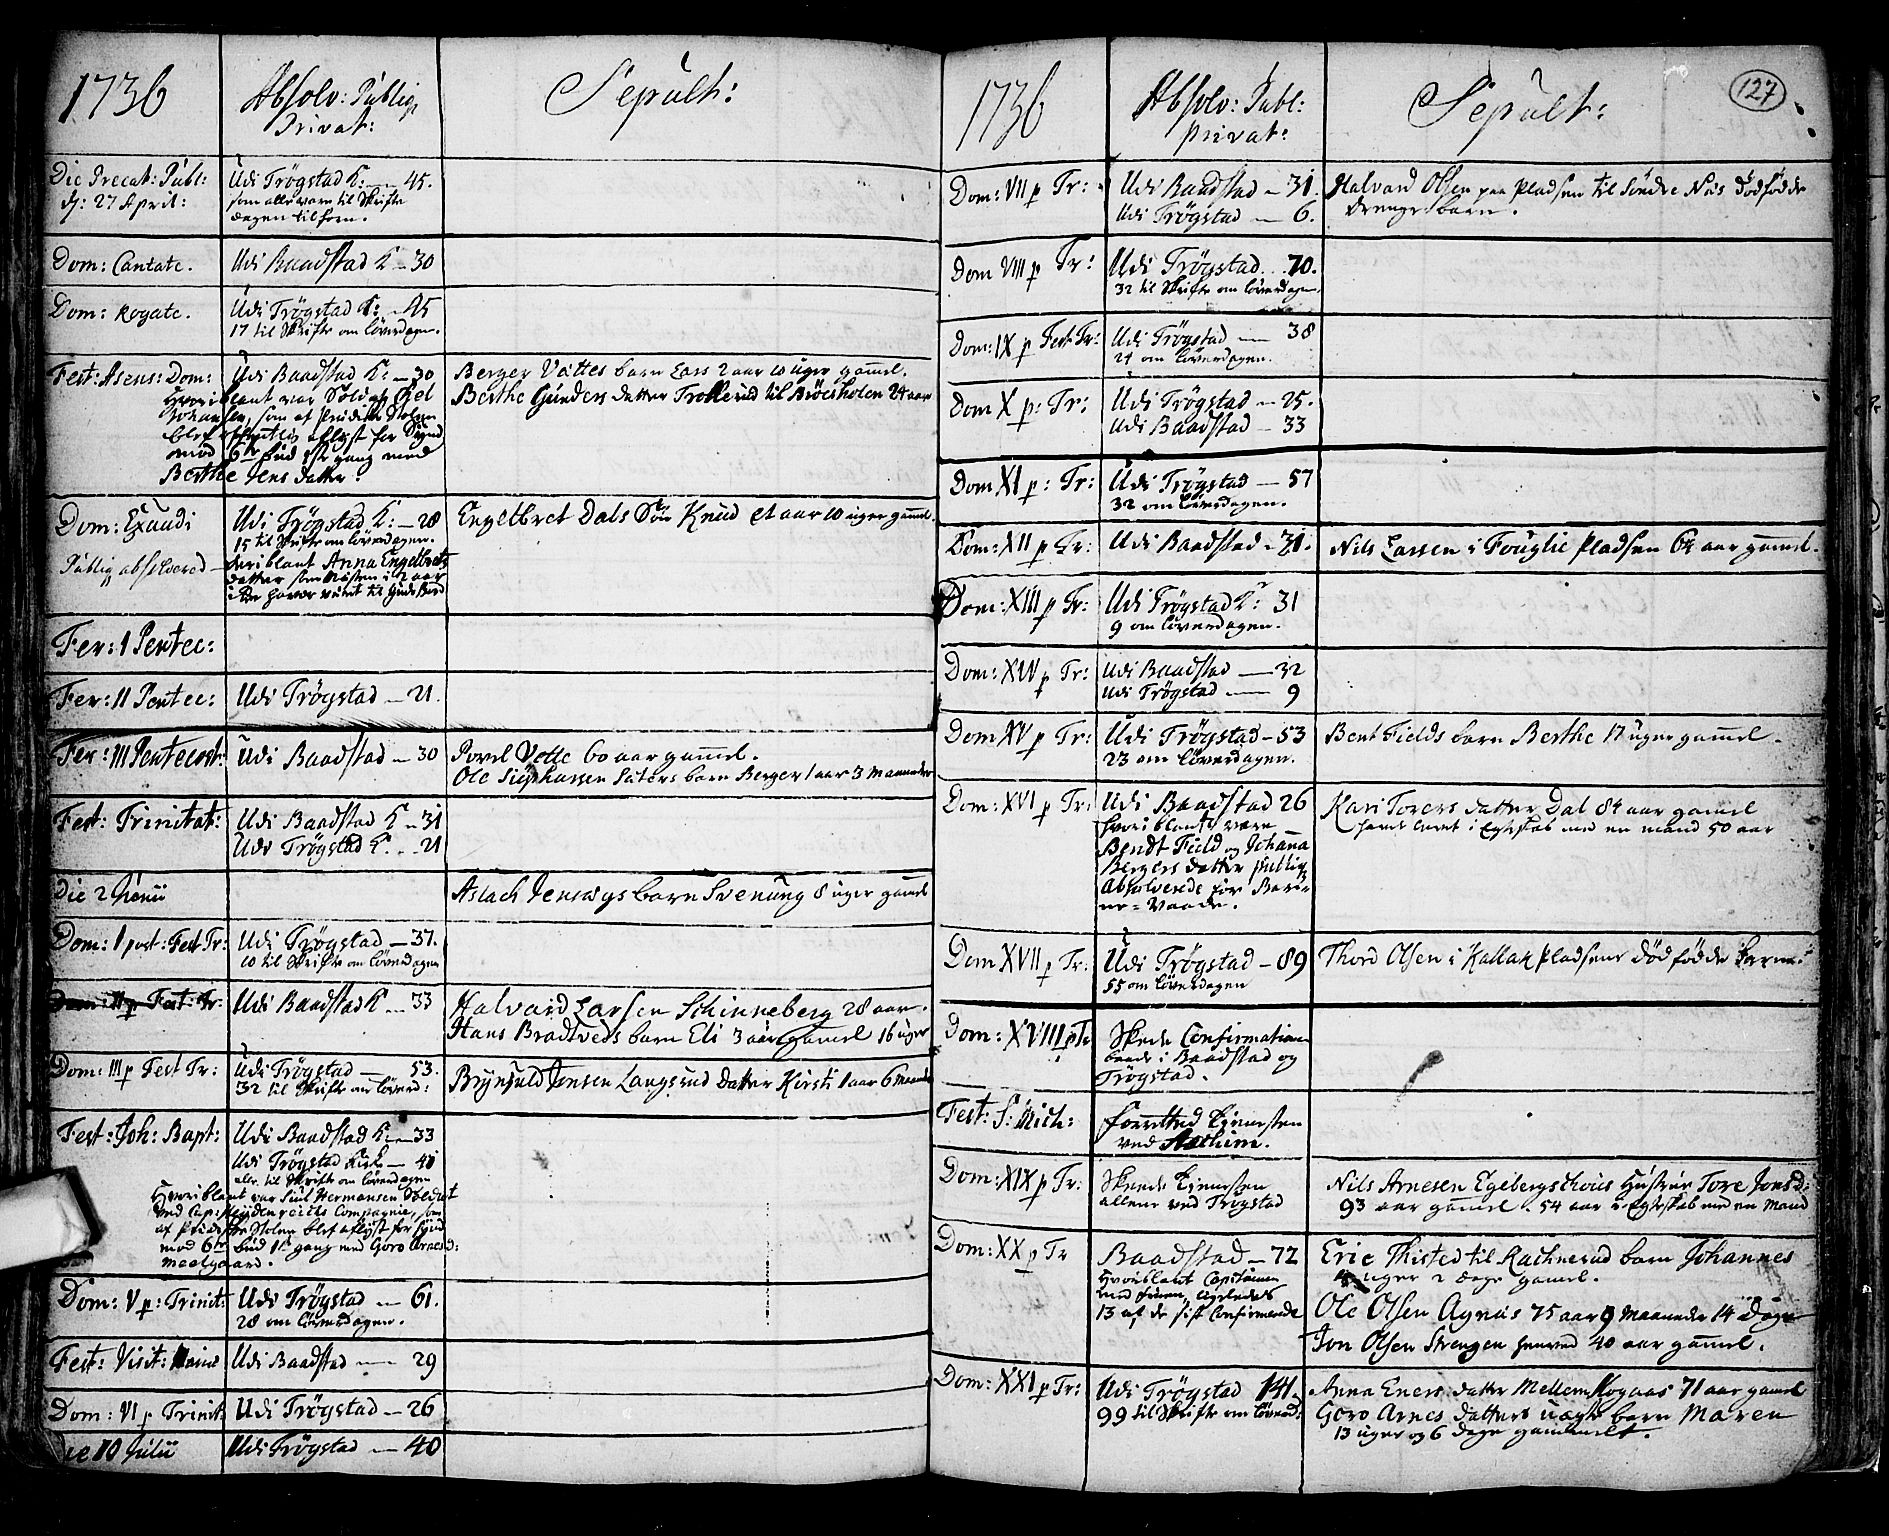 1736
Absolv: Publiq
Privat:
Sepult:
Die Precat: Publ:
d: 27 April:
Udi Trøgstad K: — 45.
som alle vare til Skrifte
dagen tilforn.
Dom: Cantate.
Udi Baadstad K — 30
Dom: Rogate.
Udi Trøgstad K: — 45
17 til Skrifte om løverdagen.
Fest: Asens: Dom:
Udi Baadstad K: — 30
Hvoriblant var Soldat
Johansen, som af Prædike Stolen
blef offentlig aflyst for Synd
mod 6te bud 1ste gang med
Berthe Jens datter.
Berger Vættes barn Lars 2 aar 10 uger gamel.
Berthe Gunders datter Trollerud til 24 aar
Dom: Exaudi
Publiq absolvered —
Udi Trøgstad K: — 28
15 til Skrifte om løverdagen.
heriblant Anna Engelbrets
datter som næsten i 2 aar
icke haver været til Guds Bord
Engelbret Dals Søn Knud et aar 10 uger gamel.
Fer: 1 Pentec:
Fer: 11 Pentec:
Udi Trøgstad — 21.
Fer: III Pentecost:
Udi Baadstad — 30
Povel Vette 60 aar gamel.
Ole barn Berger 1 aar 3 Maaneder
Fest: Trinitat:
Udi Baadstad K — 31
Udi Trøgstad K. — 21
Die 2 Junii
Aslach barn Svenung 8 uger gamel
Dom: 1 post: Fest Tr:
Udi Trøgstad — 37.
10 til Skrifte om løverdagen
Dom: II p Fest: Tr:
Udi Baadstad K — 33
Halvard Larsen Schinneberg 28 aar.
Hans Bradtveds barn Eli 3 aar gamel 16 uger
Dom: III p Fest Tr:
Udi Trøgstad — 53.
32 til Skrifte om løverd:
Brynjuld Jensen Langsrud datter Kirsti 1 aar 6 Maaneder
Fest: Joh: Bapt:
Udi Baadstad K: — 33
Udi Trøgstad Kirke — 41
alle til Skrifte om løverdagen
Hvoriblant var Hermansen Soldat
ved Capt: Compagnie, som
af Prædike Stolen blef aflyst for Synd
mod 6te bud 1ste gang med Goro Arnesd:
Dom: V p: Trinit:
Udi Trøgstad — 61.
28 om løverdagen.
Fest: Visit: Mariæ
Udi Baadstad — 29
Dom: VI p Trinit:
Udi Trøgstad — 26
Die 10 Julii
Udi Trøgstad — 40
1736
Absolv: Publ:
privat:
Sepult:
127
Dom: VII p Tr:
Udi Baadstad — 31.
Udi Trøgstad — 6.
Halvard Olsen paa Pladsen til Søndre Næs dødfødde
drengebarn.
Dom VIII p Tr:
Udi Trøgstad . . 70.
32 til Skrifte om løverdagen
Dom: IX p Fest Tr:
Udi Trøgstad — 38
24 om løverdagen.
Dom X p: Tr:
Udi Trøgstad — 25.
Udi Baadstad — 33
Dom XI p: Tr:
Udi Trøgstad — 57
32 om løverdagen.
Dom: XII p Tr:
Udi Baadstad — 31.
Nils Larsen i Fouglie Pladsen 64 aar gamel.
Dom: XIII p Tr:
Udi Trøgstad K: 31
9 om løverdagen.
Dom: XIV p Tr:
Udi Baadstad — 32
Udi Trøgstad — 9
Dom XV p Tr:
Udi Trøgstad — 53
23 om løverdagen.
Bent Fields barn Berthe 17 uger gamel.
Dom: XVI p Tr:
Udi Baadstad 26
hvoriblant vare
Bendt Field og Johana
Bergers datter publiq
Absolverede for Bar-
ne-Vaade.
Kari Torers datter Dal 84 aar gamel
havde levet i Egteskab med en mand 50 aar
Dom XVII p Tr:
Udi Trøgstad — 89
55 om løverdagen
Thord Olsen i Kallak Pladsens dødfødde barn
Dom: XVIII p Tr
Skede Confirmation
baade i Baadstad og
Trøgstad.
Fest: S: Mich:
forretted tienesten
ved
Dom: XIX p Tr:
Skeede tienesten
allene ved Trøgstad
Nils Arnesen Egebergschous Hustrue Tore Jonsd:
93 aar gamel. 54 aar i Egteskab med en Mand
Dom: XX p Tr
Baadstad — 72
Hvoriblant Capitainen
med
13 af de sist Confirmerede
Eric Thisted til Rachnerud barn Johannes
uger 2 dage gamel.
Ole Olsen Agnæs 75 aar 9 Maaneder 14 Dage
Jon Olsen Strengen henved 40 aar gamel.
Dom: XXI p Tr:
Udi Trøgstad 141.
99 til Skrifte om løverd:
Anna Eners datter Mellem Skogaas 71 aar gamel
Goro Arnes datters uægte barn Maren
13 uger og 6 dage gammelt.